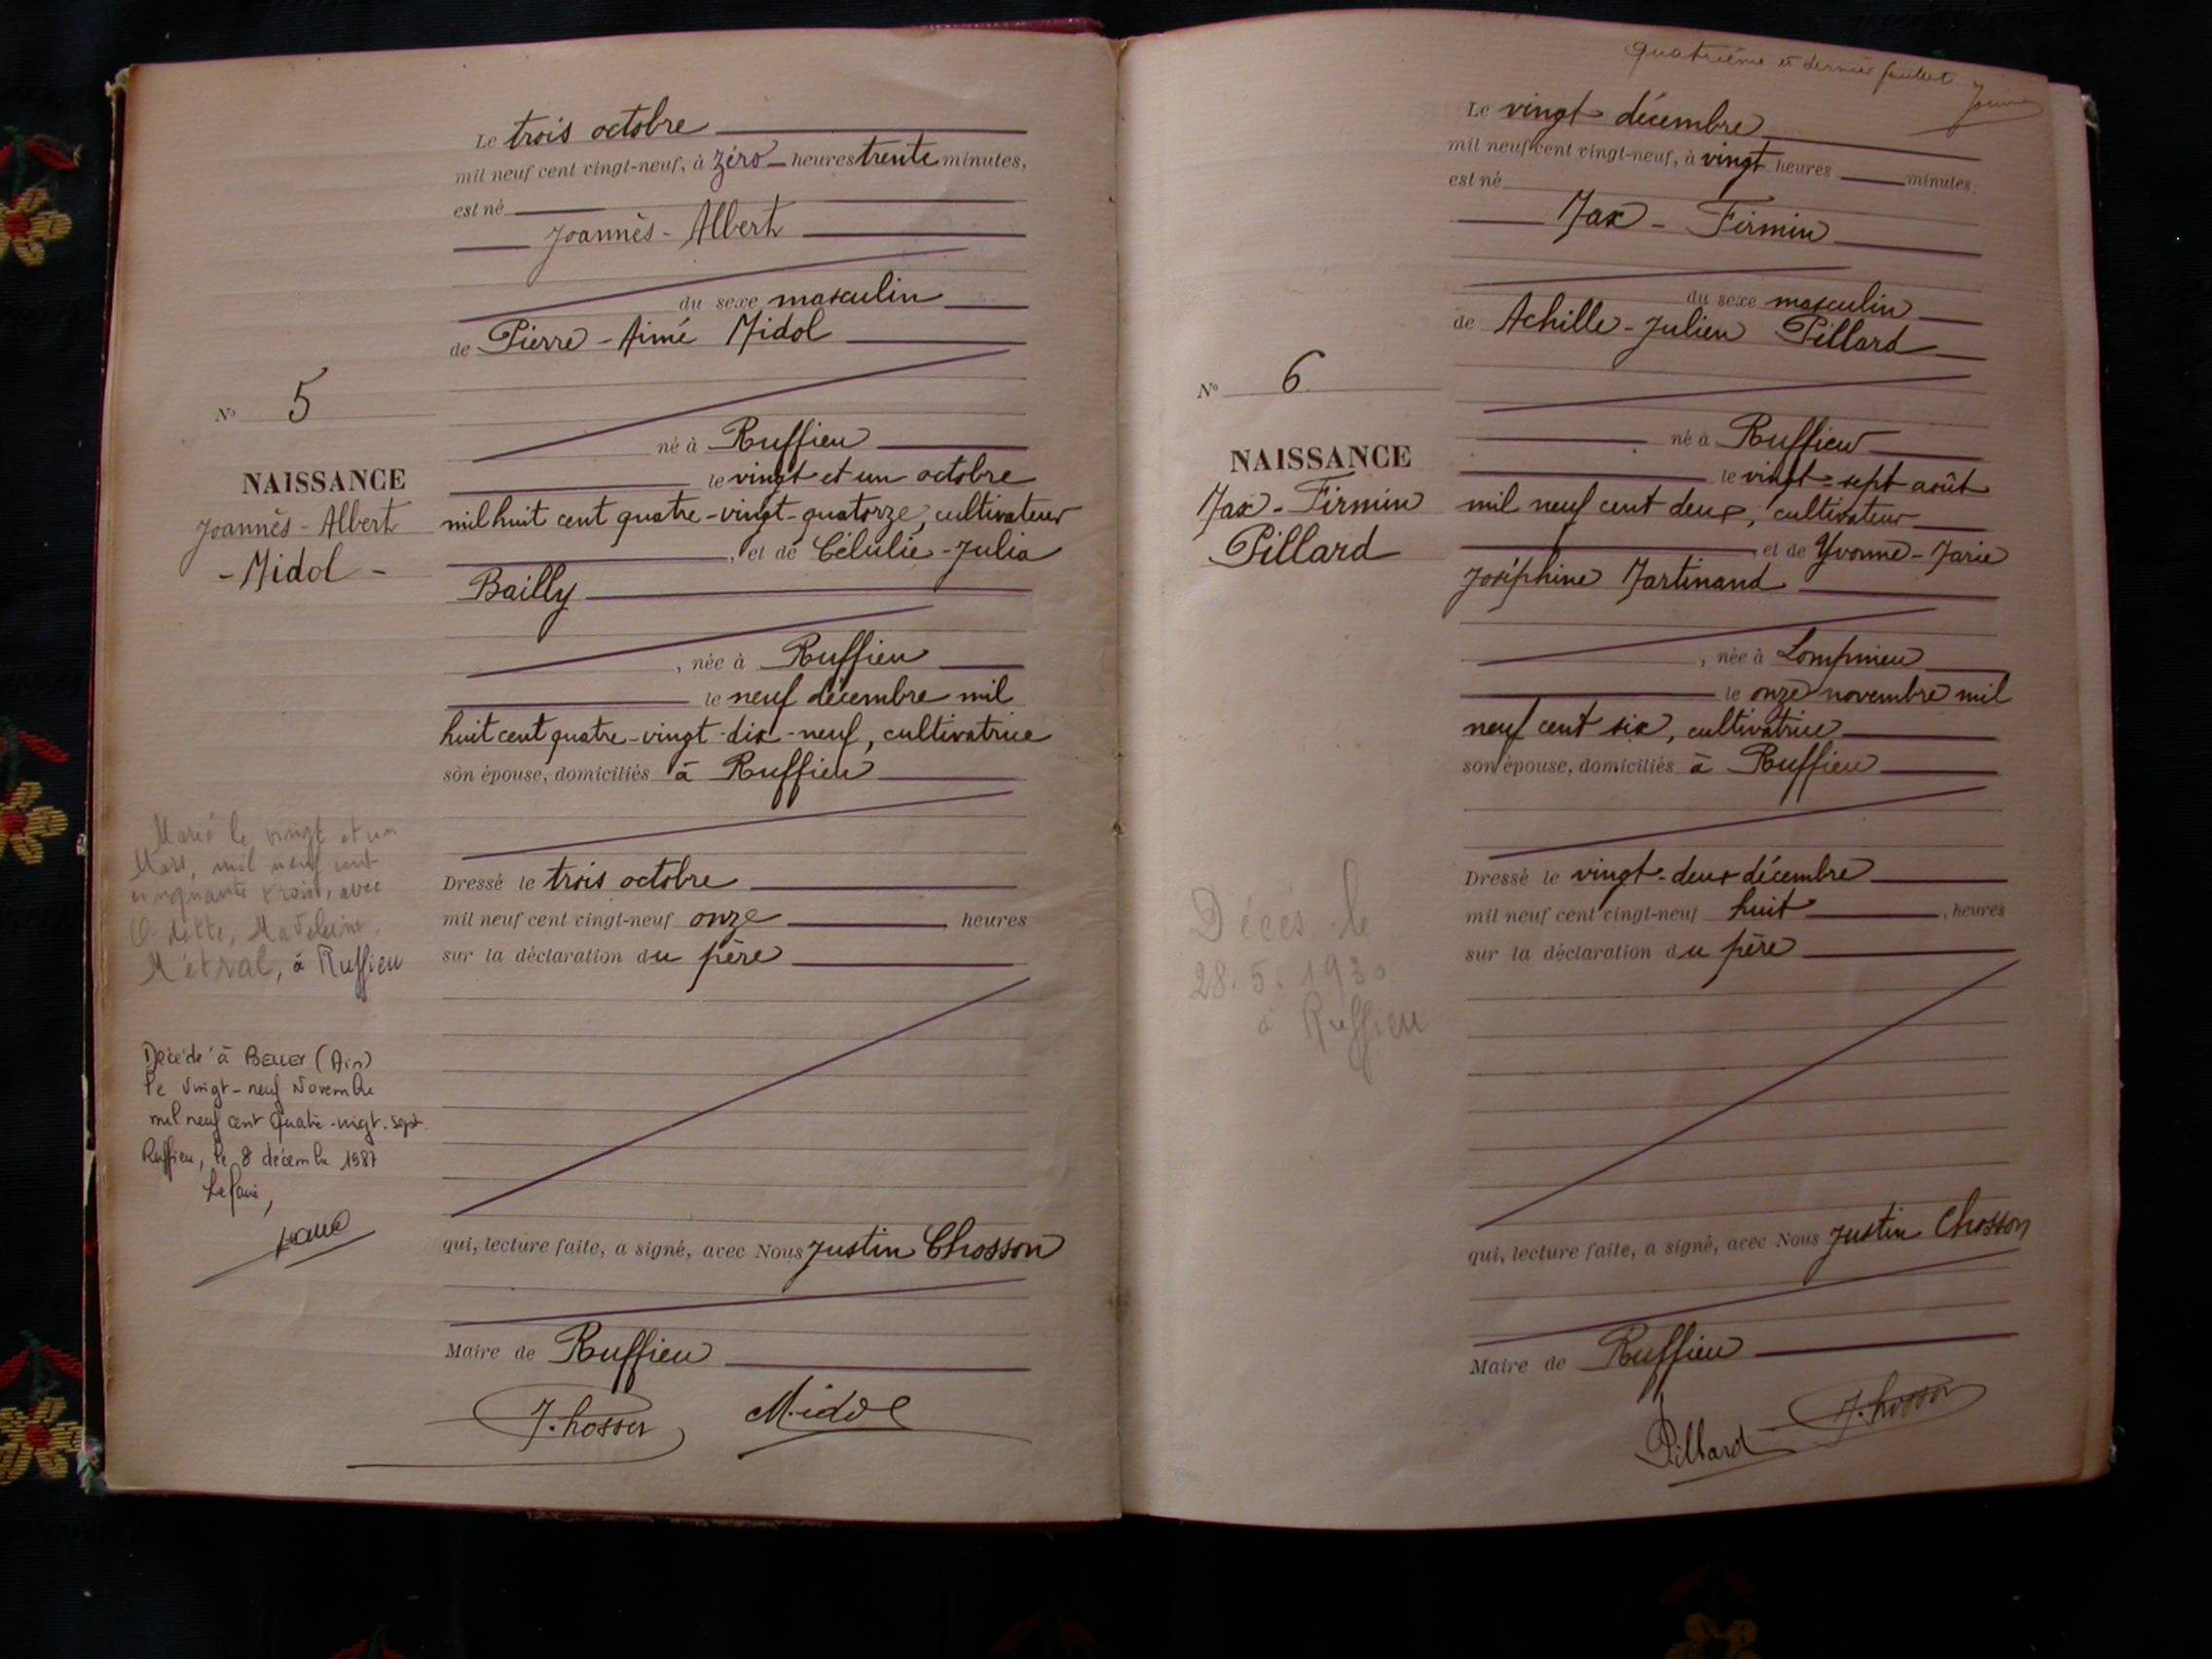 Le trois octobre
mil neuf cent vingt-neuf, à zéro heures trente minutes,
est né
Joannès - Albert
du sexe masculin
de Pierre - Aimé Midol
né à Ruffieu
le vingt et un octobre
mil huit cent quatre-vingt-quatorze, cultivateur
, et de Célulie - Julia
Bailly
, née à Ruffieu
le neuf décembre mil
huit cent quatre-vingt-dix-neuf, cultivatrice
son épouse, domiciliés à Ruffieu
Dressé le trois octobre
mil neuf cent vingt-neuf onze heures
sur la déclaration du père
qui, lecture faite, a signé, avec Nous Justin Chosson
Maire de Ruffieu
J. Chosson Midol
N° 5
NAISSANCE
Joannès - Albert
- Midol -
Marié le vingt et un
Mars, mil neuf cent
cinquante trois, avec
Odette, Madeleine
Métral, à Ruffieu
Décédé à BELLEY (Ain)
le vingt-neuf Novembre
mil neuf cent quatre-vingt-sept.
Ruffieu, le 8 décembre 1987
Le Maire,
quatrième et dernier feuillet
Le vingt décembre
mil neuf cent vingt-neuf, à vingt heures minutes.
est né
Max - Firmin
du sexe masculin
de Achille - Julien Pillard
né à Ruffieu
le vingt-sept août
mil neuf cent deux, cultivateur
et de Yvonne - Marie
Joséphine Martinand
, née à Lompnieu
le onze novembre mil
neuf cent six, cultivatrice
son épouse, domiciliés à Ruffieu
Dressé le vingt-deux décembre
mil neuf cent vingt-neuf huit , heures
sur la déclaration du père
qui, lecture faite, a signé, avec Nous Justin Chosson
Maire de Ruffieu
Pillard J. Chosson
N° 6
NAISSANCE
Max - Firmin
Pillard
Décès le
28.5.1930
à Ruffieu